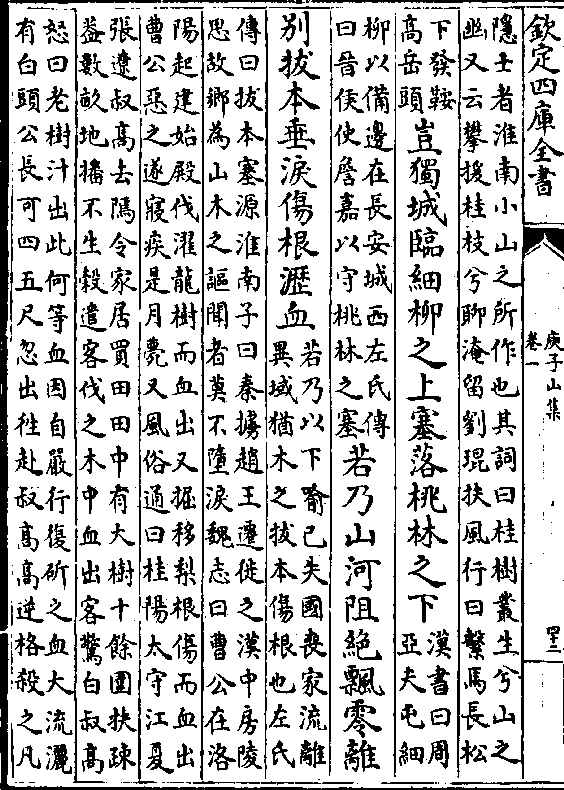 欽定四庫全書
庾子山集
卷一
四三
隱士者淮南小山之所作也其詞曰桂樹叢生兮山之
幽又云攀援桂枝兮聊淹留劉琨扶風行曰繫馬長松
下發鞍
高岳頭
豈獨城臨細柳之上塞落桃林之下
漢書曰周
亞夫屯細
柳以備邊在長安城西左氏傳
曰晉侯使詹嘉以守桃林之塞
若乃山河阻絶飄零離
别拔本垂淚傷根瀝血
若乃以下喻已失國喪家流離
異域猶木之拔本傷根也左氏
傳曰拔本塞源淮南子曰秦擄趙王遷徙之漢中房陵
思故鄉為山木之謳聞者莫不墮淚魏志曰曹公在洛
陽起建始殿伐濯龍樹而血出又掘移梨根傷而血出
曹公惡之遂寢疾是月薨又風俗通曰桂陽太守江夏
張遼叔高去隝令家居買田田中有大樹十餘圍扶疎
葢數畝地播不生穀遣客伐之木中血出客驚白叔高
怒曰老樹汁出此何等血因自嚴行復斫之血大流灑
有白頭公長可四五尺忽出徃赴叔高高逆格殺之凡